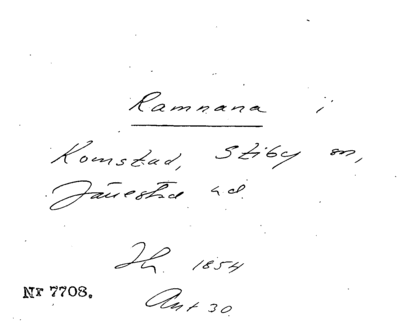 Ramnana i
Komstad, Stiby sn,
Järrestad hd.
Jh. 1854
Ant 30
Nr 7708.